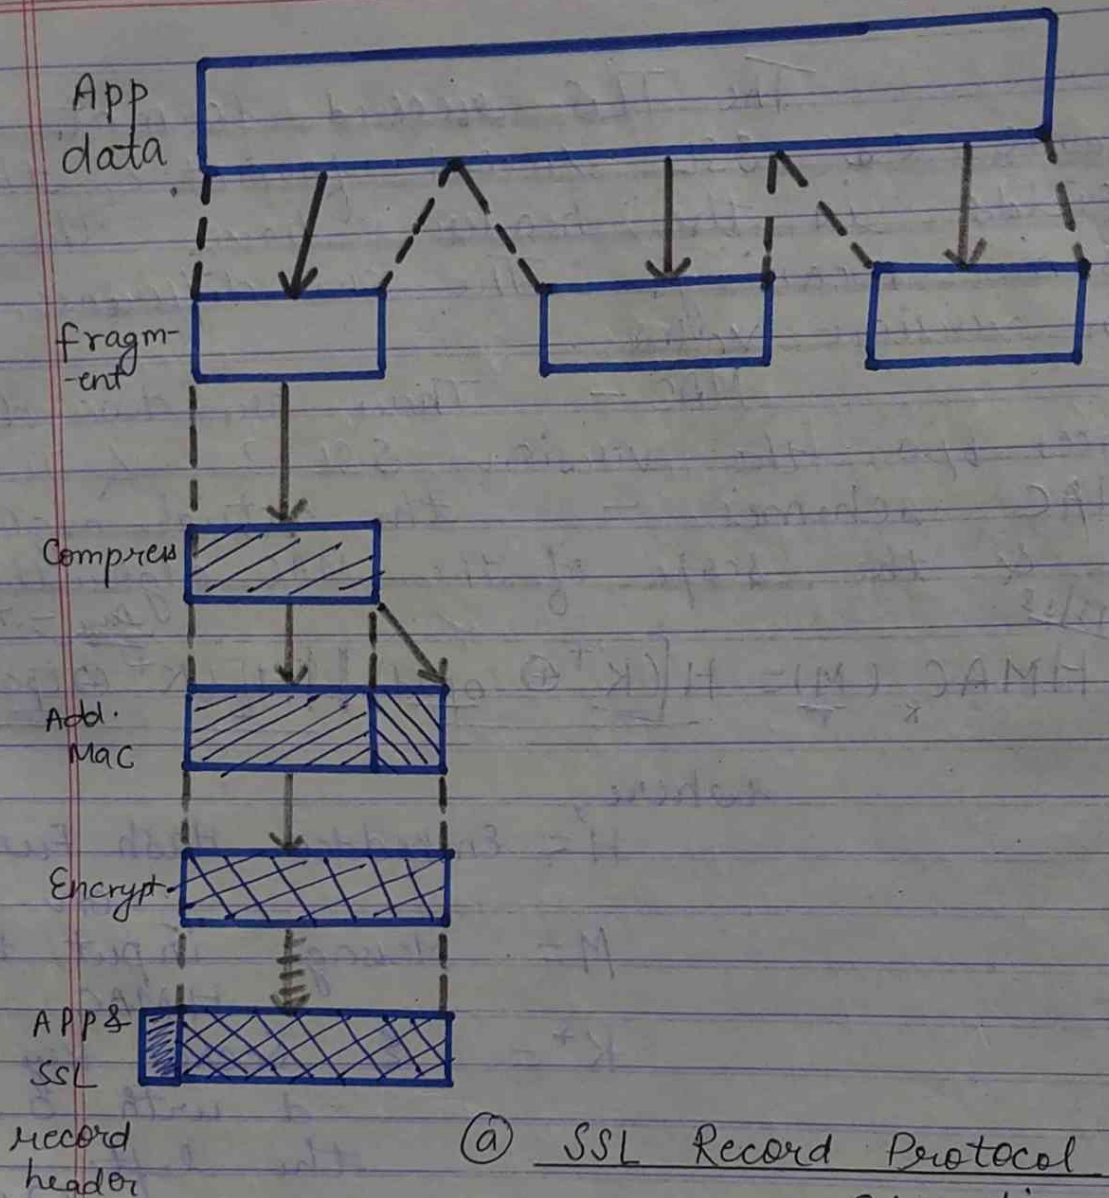 App
data
fragm-
-ent
Compress
Add.
MAC
Encrypt.
APP &
SSL
record
header
(a) SSL Record Protocol